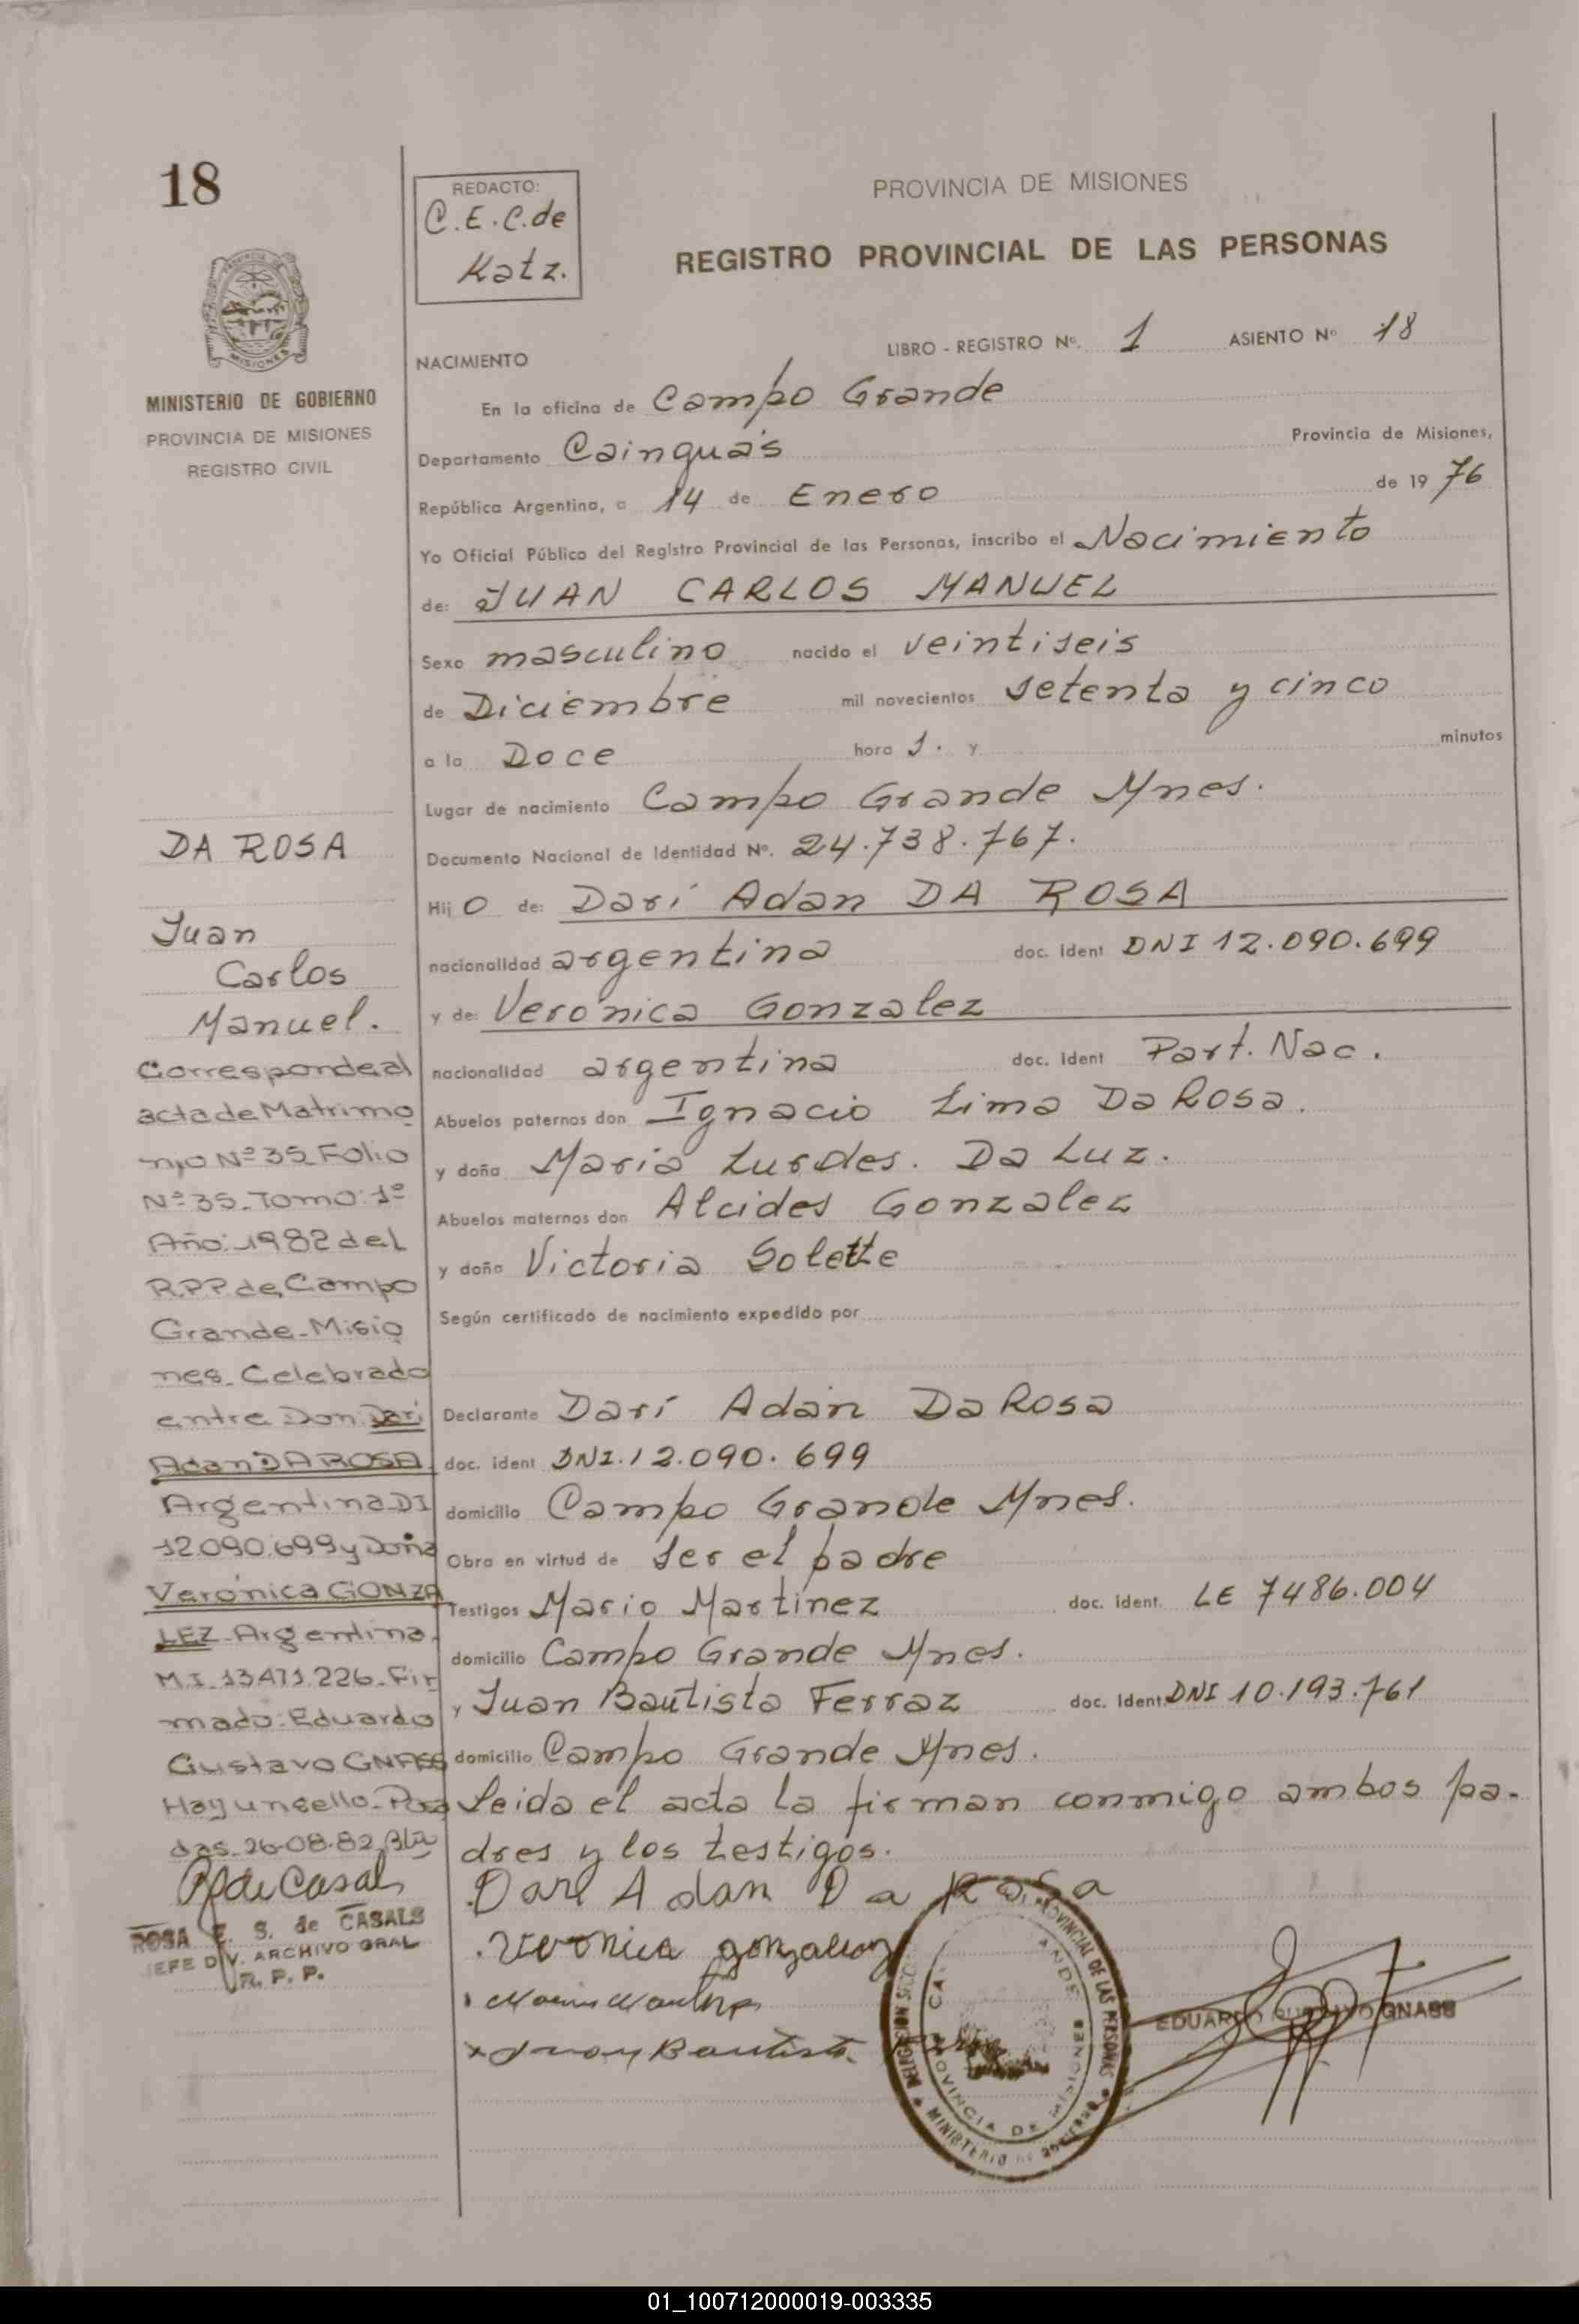 18
REDACTO:
C.E.C.de
Katz.
PROVINCIA DE MISIONES
REGISTRO PROVINCIAL DE LAS PERSONAS
MISIONES
MINISTERIO DE GOBIERNO
PROVINCIA DE MISIONES
REGISTRO CIVIL
NACIMIENTO
LIBRO - REGISTRO Nº. 1 ASIENTO Nº 18
En la oficina de Campo Grande
Departamento Cainguás Provincia de Misiones,
República Argentina, a 14 de Enero de 19 76
Yo Oficial Público del Registro Provincial de las Personas, inscribo el Nacimiento
de: JUAN CARLOS MANUEL
Sexo masculino nacido el veintiseis
de Diciembre mil novecientos setenta y cinco
a la Doce hora s. y minutos
Lugar de nacimiento Campo Grande Mnes.
Documento Nacional de Identidad Nº. 24.738.767.
Hij o de: Darí Adan DA ROSA
nacionalidad argentina doc. Ident DNI 12.090.699
y de: Verónica Gonzalez
nacionalidad argentina doc. ident Part. Nac.
Abuelos paternos don Ignacio Lima Da Rosa.
y doña Maria Lurdes. Da Luz.
Abuelos maternos don Alcides Gonzalez
y doña Victoria Solette
Según certificado de nacimiento expedido por
Declarante Darí Adán Da Rosa
doc. ident DNI.12.090.699
domicilio Campo Grande Mnes.
Obra en virtud de ser el padre
Testigos Mario Martínez doc. ident. LE 7486.004
domicilio Campo Grande Mnes.
y Juan Bautista Ferraz doc. Ident. DNI 10.193.761
domicilio Campo Grande Mnes.
Leida el acta la firman conmigo ambos pa-
dres y los testigos.
Dari Adan Da Rosa
Veronica gonzalez
Juan Bautista
EDUARDO GUSTAVO GNASS
DELEGACION PROVINCIAL DE LAS PERSONAS
MINISTERIO DE GOBIERNO
PROVINCIA DE MISIONES
DA ROSA
Juan
Carlos
Manuel.
Corresponde al
acta de Matrimo
nio Nº 35 Folio
Nº 35. Tomo: 1º
Año: 1982 del
R.P.P. de Campo
Grande-Misio
nes. Celebrado
entre Don: Darí
Adan DA ROSA.
Argentina DI
12.090.699 y Doña
Verónica GONZA
LEZ-Argentina.
M.I. 13471.226-Fir
mado: Eduardo
Gustavo GNASS
Hay un sello-Posa
das. 26-08-82
ROSA E. S. de CASALS
JEFE DIV. ARCHIVO GRAL
R. P. P.
01_100712000019-003335